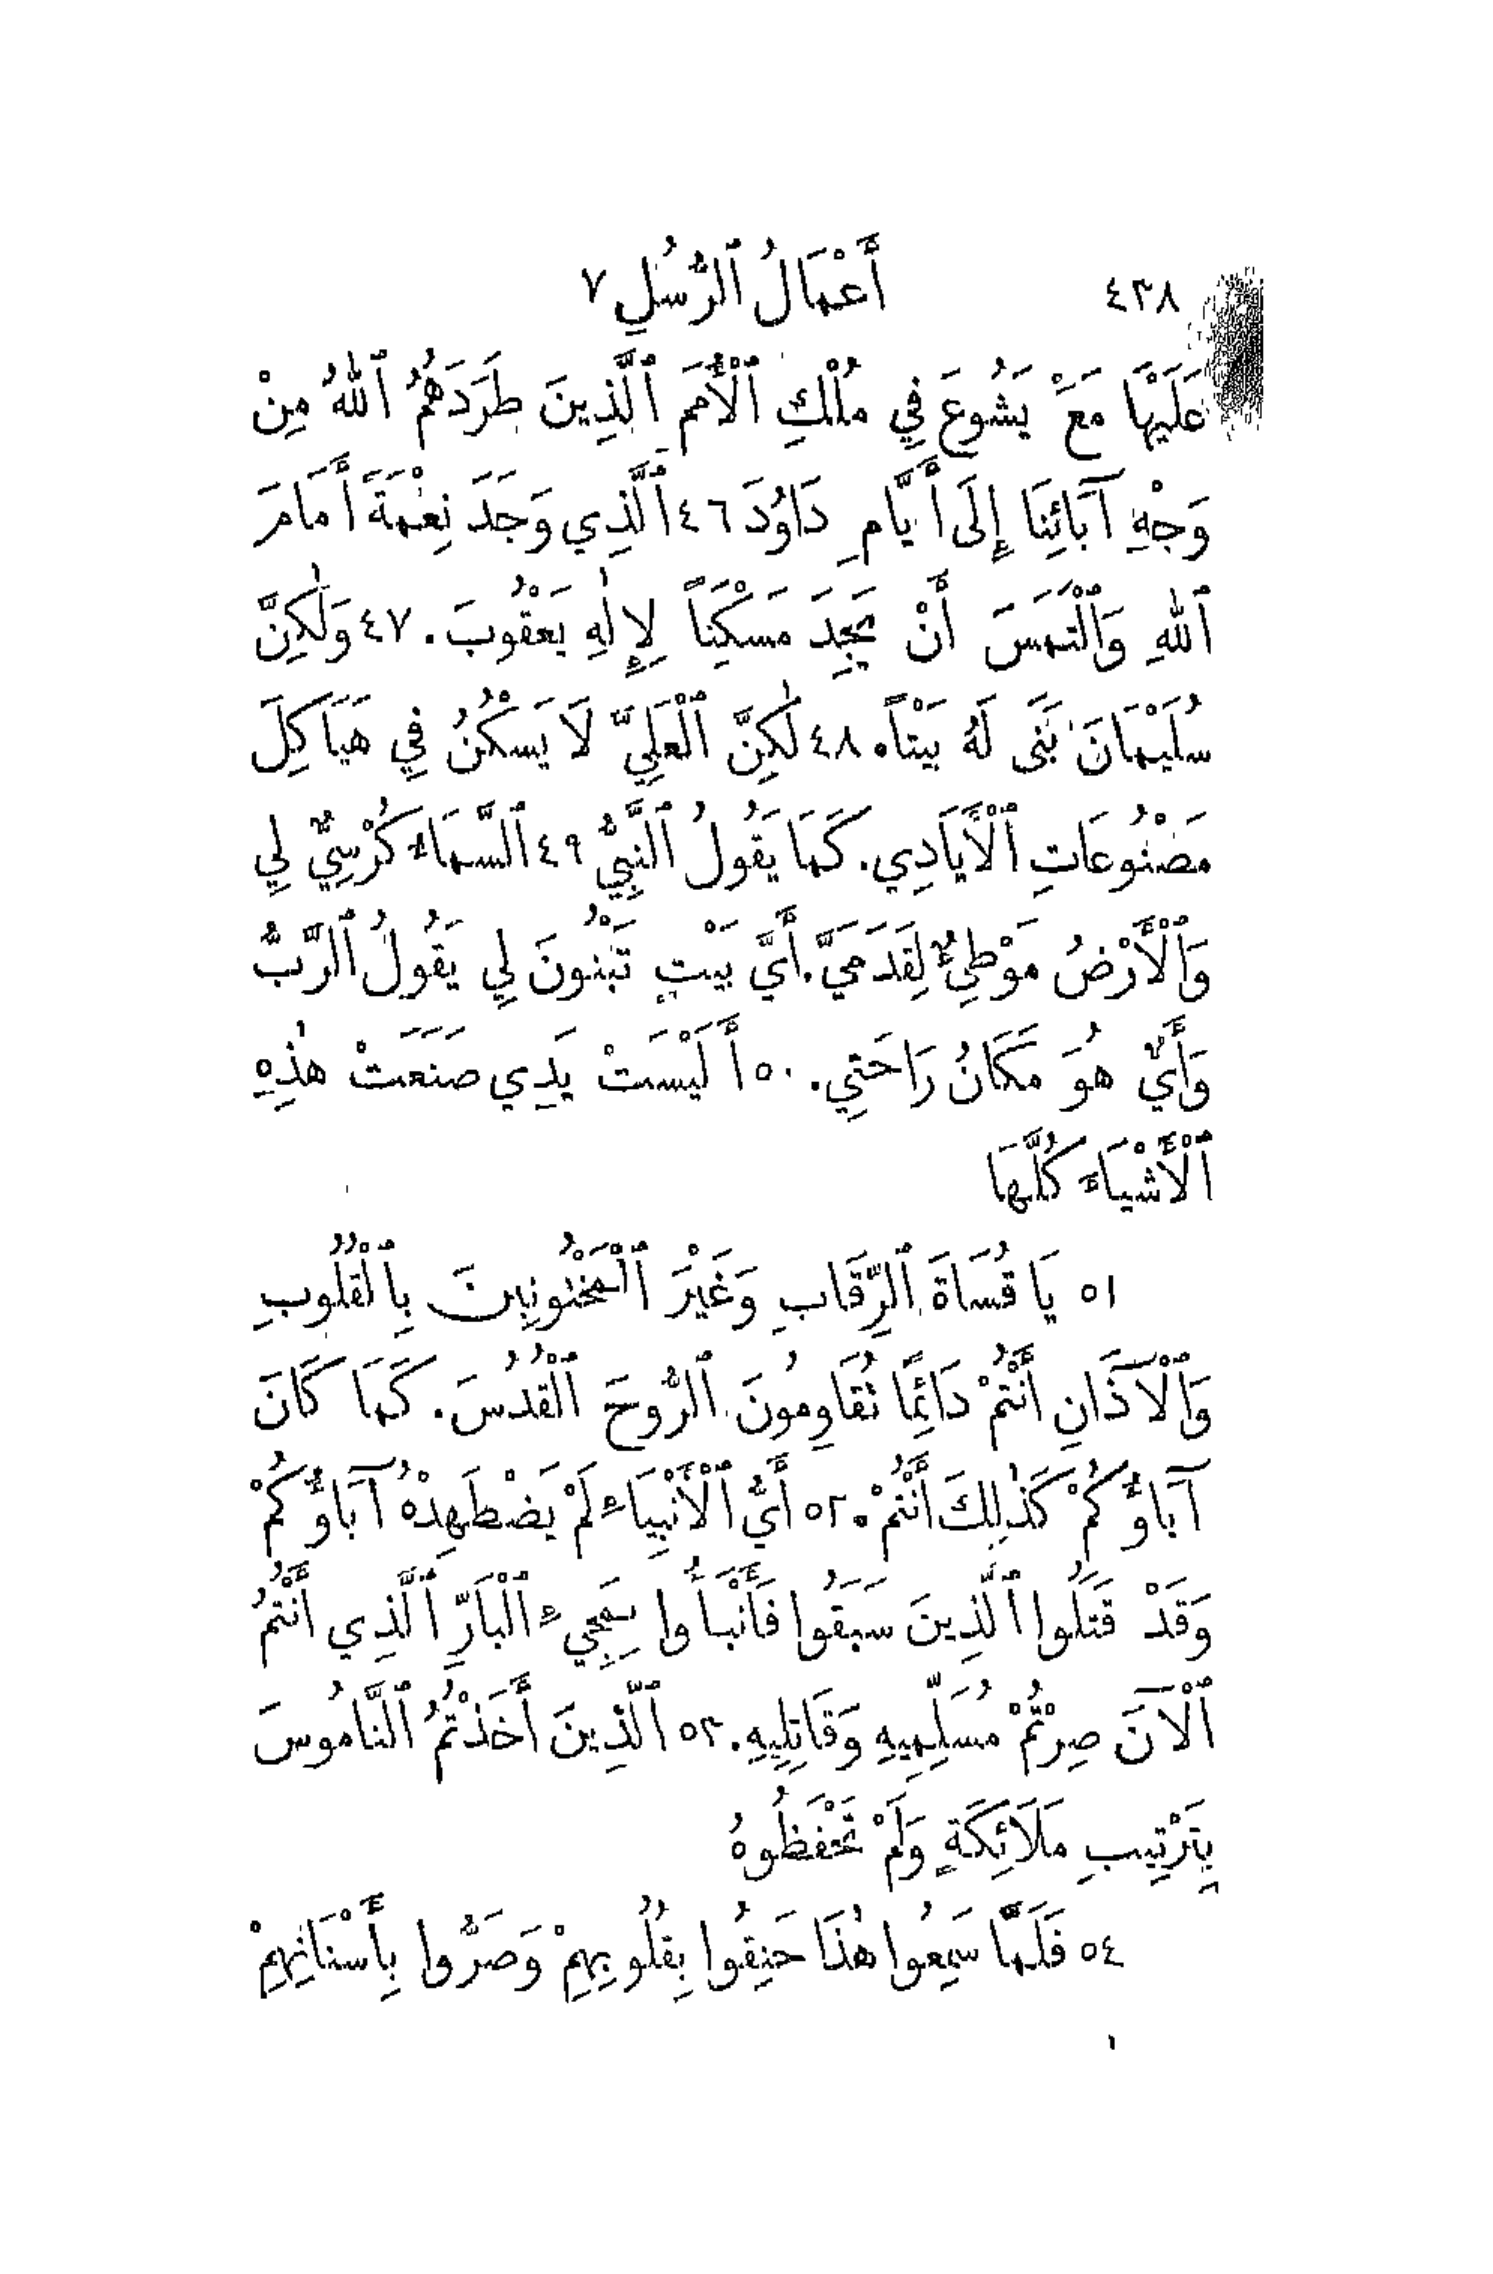 ٤٣٨ أَعْمَالُ ٱلرُّسُلِ ٧
عَلَيْهَا مَعَ يَشُوعَ فِي مُلْكِ ٱلْأُمَمَ ٱلَّذِينَ طَرَدَهُمُ ٱللهُ مِنْ
وَجْهِ آبَائِنَا إِلَى أَيَّامِ دَاوُدَ ٤٦ ٱلَّذِي وَجَدَ نِعْمَةً أَمَامَ
ٱللهِ وَٱلْتَمَسَ أَنْ يَجِدَ مَسْكِنَاً لِإِلٰهِ يَعْقُوبَ. ٤٧ وَلٰكِنَّ
سُلَيْمَانَ بَنَى لَهُ بَيْتاً. ٤٨ لٰكِنَّ ٱلْعَلِيَّ لَا يَسْكُنُ فِي هَيَاكِلَ
مَصْنُوعَاتِ ٱلْأَيَادِي. كَمَا يَقُولُ ٱلنَّبِيُّ ٤٩ ٱلسَّمَاءُ كُرْسِيٌّ لِي
وَٱلْأَرْضُ مَوْطِئٌ لِقَدَمَيَّ. أَيَّ بَيْتٍ تَبْنُونَ لِي يَقُولُ ٱلرَّبُّ
وَأَيٌّ هُوَ مَكَانُ رَاحَتِي. ٥٠ أَلَيْسَتْ يَدِي صَنَعَتْ هٰذِهِ
ٱلْأَشْيَاءَ كُلَّهَا
٥١ يَا قُسَاةَ ٱلرِّقَابِ وَغَيْرَ ٱلْمَخْتُونِينَ بِٱلْقُلُوبِ
وَٱلْآذَانِ أَنْتُمْ دَائِمًا تُقَاوِمُونَ ٱلرُّوحَ ٱلْقُدُسَ. كَمَا كَانَ
آبَاؤُكُمْ كَذٰلِكَ أَنْتُمْ. ٥٢ أَيُّ ٱلْأَنْبِيَاءِ لَمْ يَضْطَهِدْهُ آبَاؤُكُمْ
وَقَدْ قَتَلُوا ٱلَّذِينَ سَبَقُوا فَأَنْبَأُوا بِمَجِيءِ ٱلْبَارِّ ٱلَّذِي أَنْتُمُ
ٱلْآنَ صِرْتُمْ مُسَلِّمِيهِ وَقَاتِلِيهِ. ٥٣ ٱلَّذِينَ أَخَذْتُمُ ٱلنَّامُوسَ
بِتَرْتِيبِ مَلَائِكَةٍ وَلَمْ تَحْفَظُوهُ
٥٤ فَلَمَّا سَمِعُوا هٰذَا حَنِقُوا بِقُلُوبِهِمْ وَصَرُّوا بِأَسْنَانِهِمْ